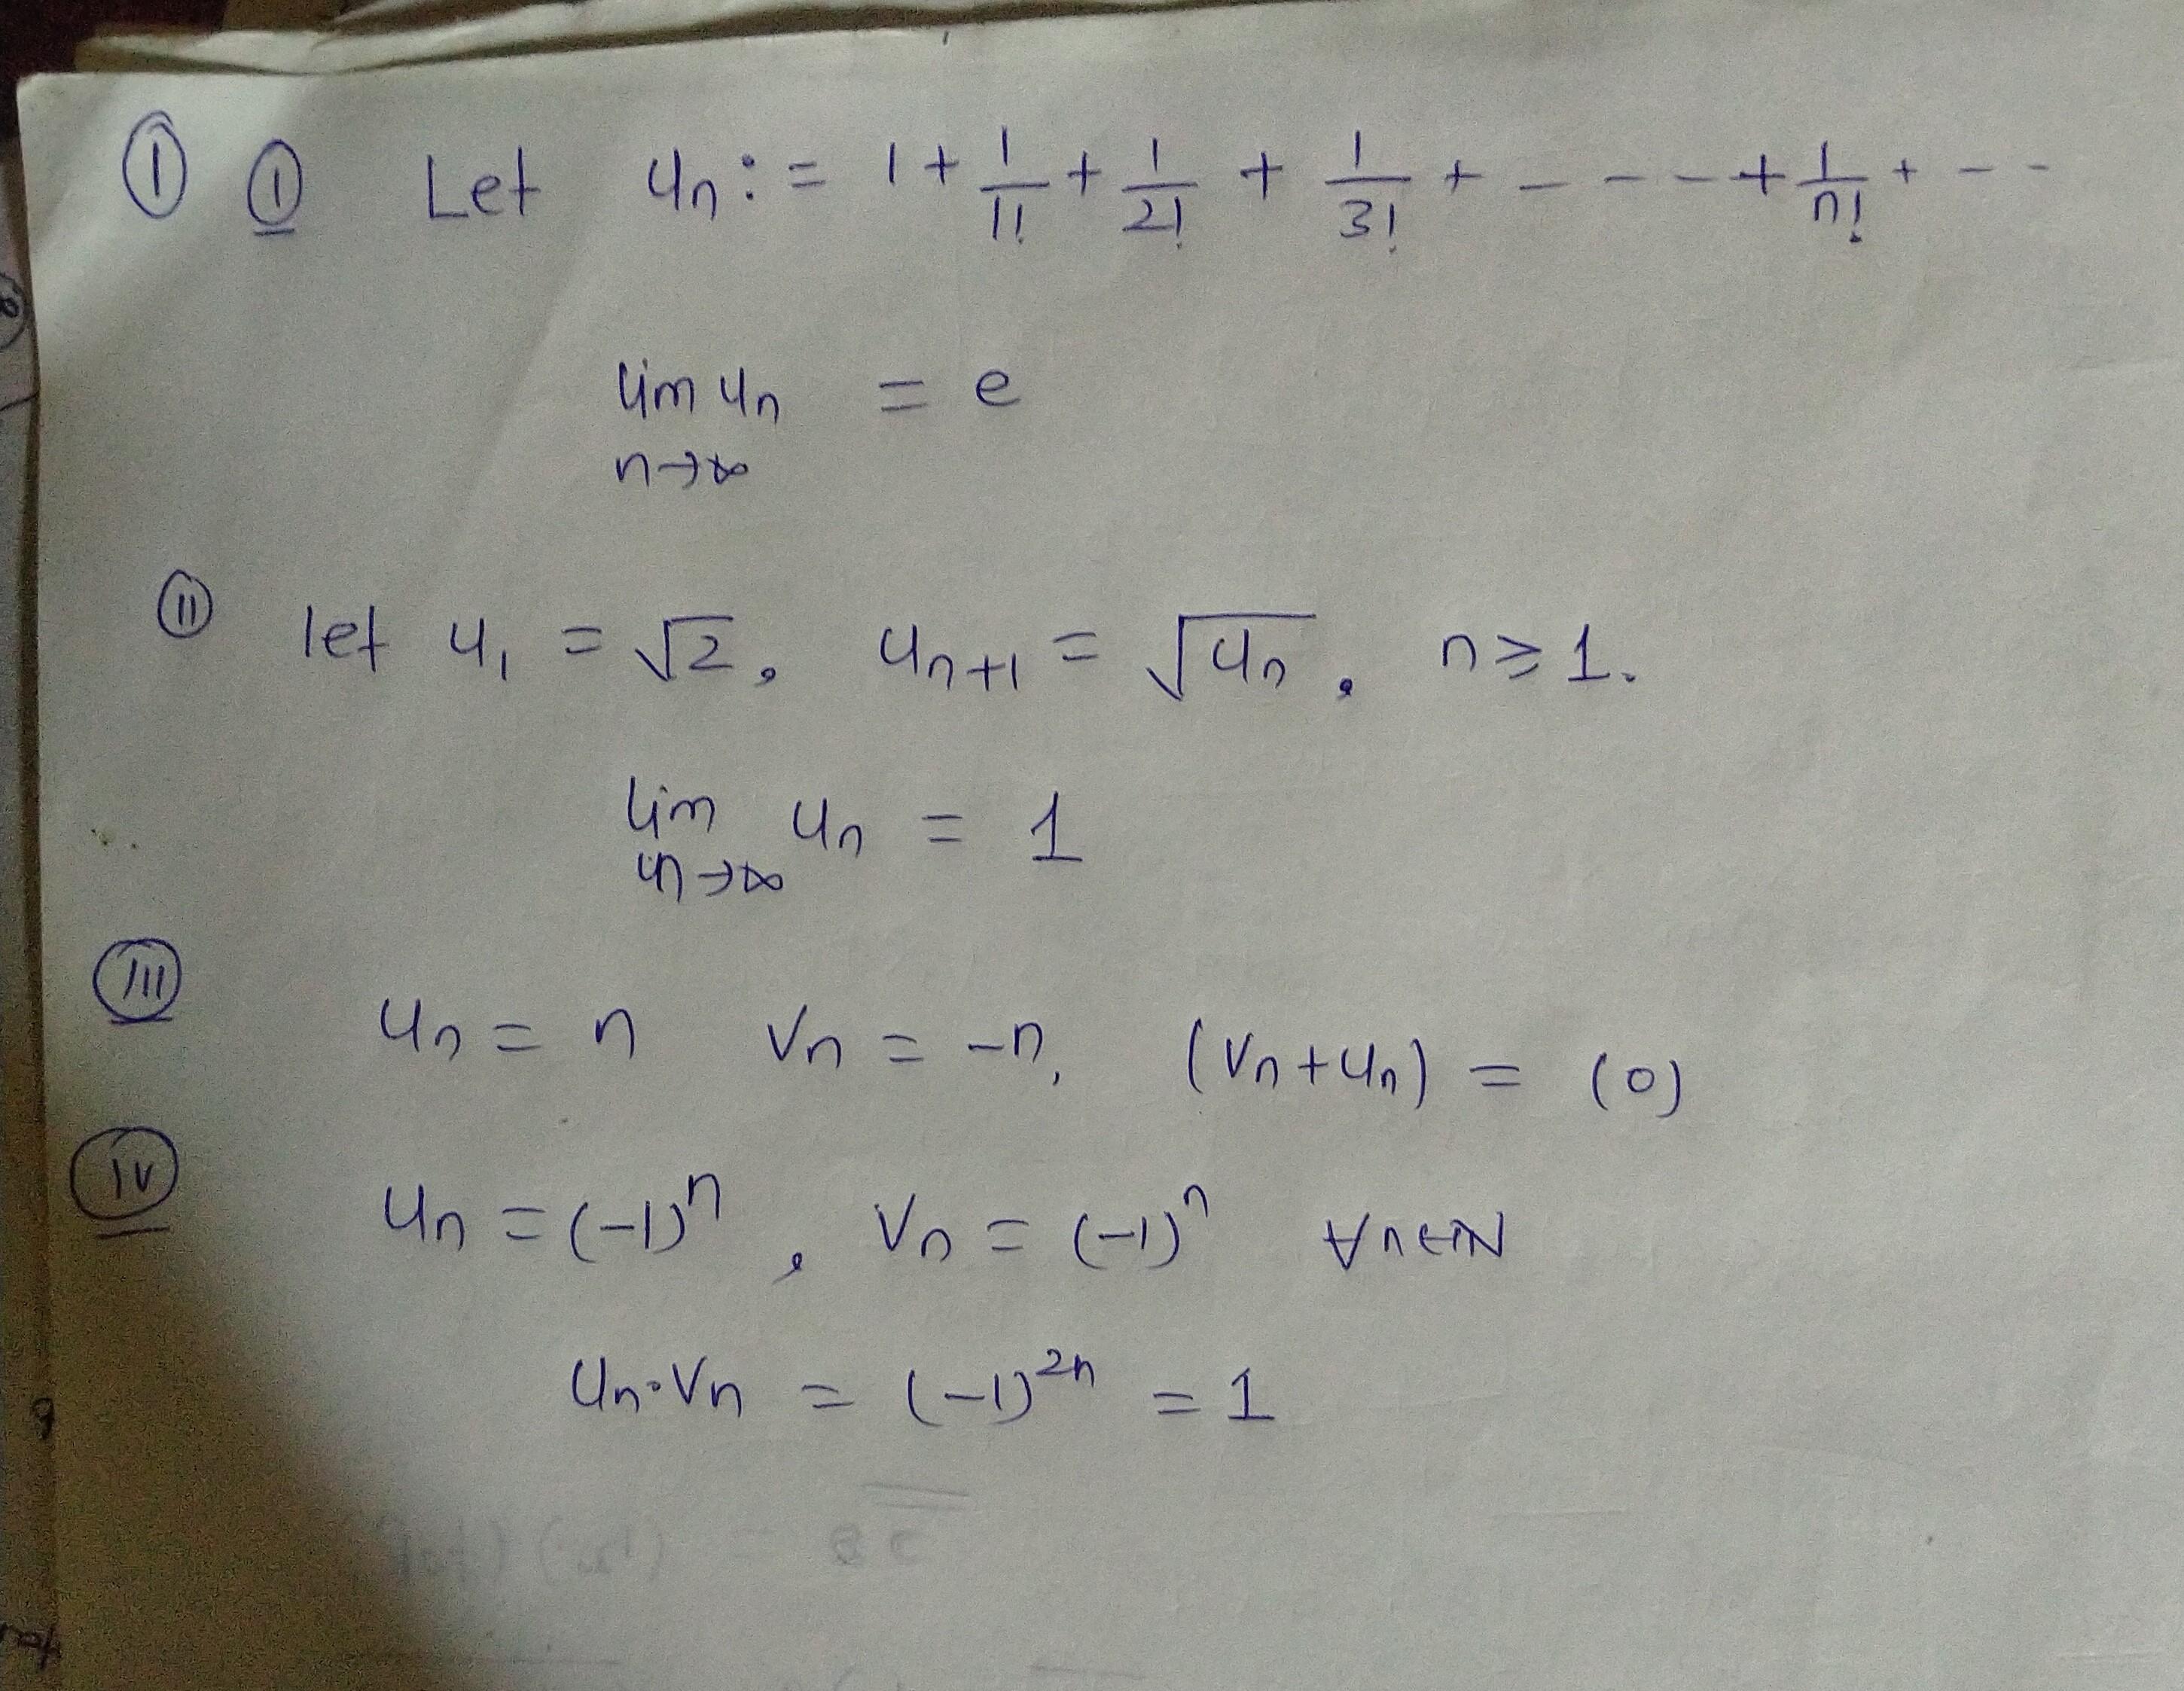 ① ① Let uₙ := 1 + 1/1! + 1/2! + 1/3! + ---- + 1/n! + --
lim uₙ = e
n→∞
(ii) let u₁ = √2, uₙ₊₁ = √uₙ, n ≥ 1.
lim uₙ = 1
n→∞
(iii) uₙ = n vₙ = -n, (vₙ+uₙ) = (0)
(iv) uₙ = (-1)ⁿ, vₙ = (-1)ⁿ ∀n∈ℕ
uₙ·vₙ = (-1)²ⁿ = 1